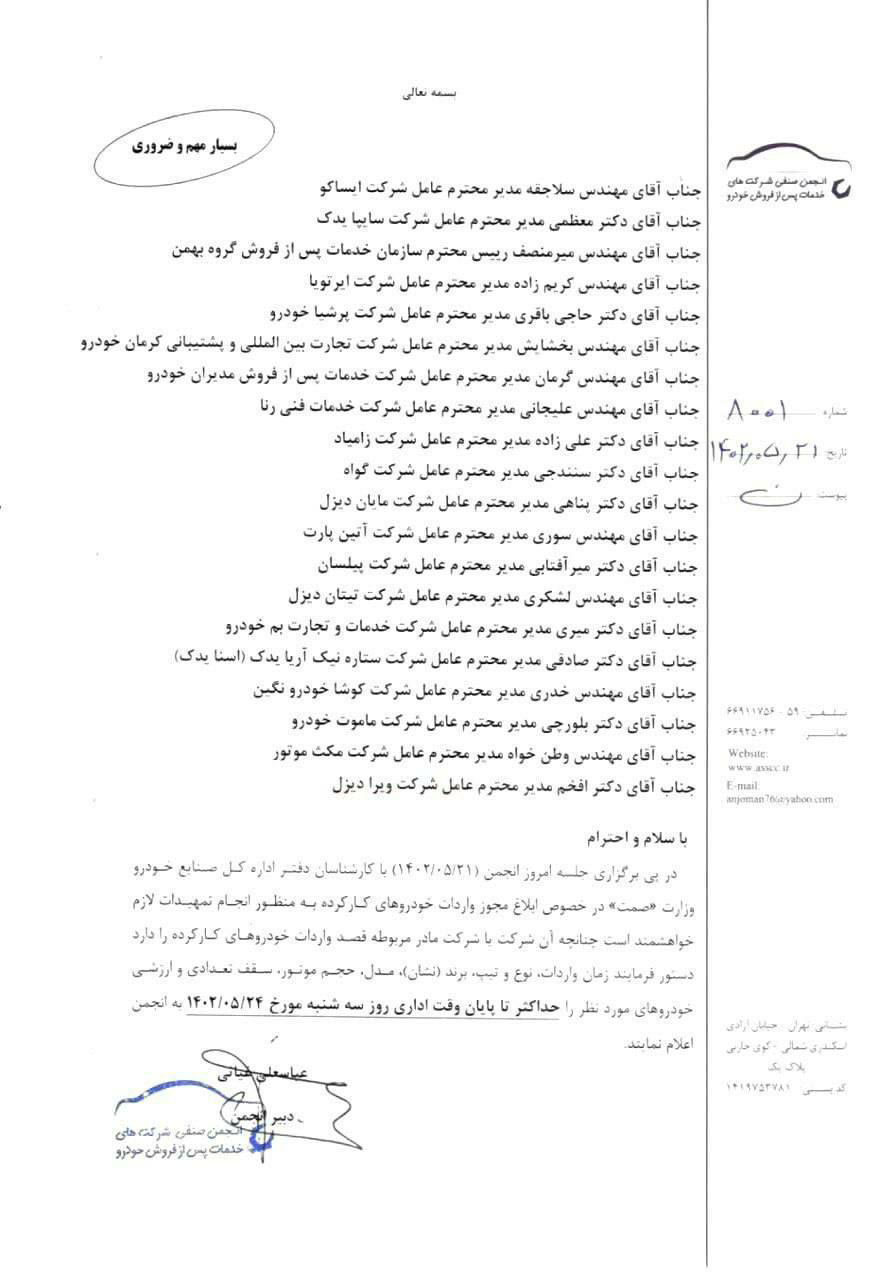 بسمه تعالی
بسیار مهم و ضروری
انجمن صنفی شرکت های
خدمات پس از فروش خودرو
جناب آقای مهندس سلاجقه مدیر محترم عامل شرکت ایساکو
جناب آقای دکتر معظمی مدیر محترم عامل شرکت سایپا یدک
جناب آقای مهندس میرمنصف رییس محترم سازمان خدمات پس از فروش گروه بهمن
جناب آقای مهندس کریم زاده مدیر محترم عامل شرکت ایرتویا
جناب آقای دکتر حاجی باقری مدیر محترم عامل شرکت پرشیا خودرو
جناب آقای مهندس بخشایش مدیر محترم عامل شرکت تجارت بین المللی و پشتیبانی کرمان خودرو
جناب آقای مهندس گرمان مدیر محترم عامل شرکت خدمات پس از فروش مدیران خودرو
جناب آقای مهندس علیجانی مدیر محترم عامل شرکت خدمات فنی رنا
جناب آقای دکتر علی زاده مدیر محترم عامل شرکت زامیاد
جناب آقای دکتر سنندجی مدیر محترم عامل شرکت گواه
جناب آقای دکتر پناهی مدیر محترم عامل شرکت مایان دیزل
جناب آقای مهندس سوری مدیر محترم عامل شرکت آتین پارت
جناب آقای دکتر میرآفتابی مدیر محترم عامل شرکت پیلسان
جناب آقای مهندس لشکری مدیر محترم عامل شرکت تیتان دیزل
جناب آقای دکتر میری مدیر محترم عامل شرکت خدمات و تجارت بم خودرو
جناب آقای دکتر صادقی مدیر محترم عامل شرکت ستاره نیک آریا یدک (اسنا یدک)
جناب آقای مهندس خدری مدیر محترم عامل شرکت کوشا خودرو نگین
جناب آقای دکتر بلورچی مدیر محترم عامل شرکت ماموت خودرو
جناب آقای مهندس وطن خواه مدیر محترم عامل شرکت مکث موتور
جناب آقای دکتر افخم مدیر محترم عامل شرکت ویرا دیزل
شماره ۸۰۰۱
تاریخ ۱۴۰۲,۰۵,۲۱
پیوست
تلفن: ۵۹ - ۶۶۹۱۱۷۵۶
نمابر ۶۶۹۲۵۰۴۳
Website:
www.asscc.ir
E-mail:
anjoman76@yahoo.com
با سلام و احترام
در پی برگزاری جلسه امروز انجمن (۱۴۰۲/۰۵/۲۱) با کارشناسان دفتر اداره کل صنایع خودرو
وزارت «صمت» در خصوص ابلاغ مجوز واردات خودروهای کارکرده به منظور انجام تمهیدات لازم
خواهشمند است چنانچه آن شرکت یا شرکت مادر مربوطه قصد واردات خودروهای کارکرده را دارد
دستور فرمایند زمان واردات، نوع و تیپ، برند (نشان)، مدل، حجم موتور، سقف تعدادی و ارزشی
خودروهای مورد نظر را حداکثر تا پایان وقت اداری روز سه شنبه مورخ ۱۴۰۲/۰۵/۲۴ به انجمن
اعلام نمایند.
نشانی: تهران - خیابان آزادی
اسکندری شمالی - کوی
پلاک یک
کد پستی: ۱۴۱۹۷۵۳۷۸۱
عباسعلی
دبیر انجمن
انجمن صنفی شرکت های
خدمات پس از فروش خودرو